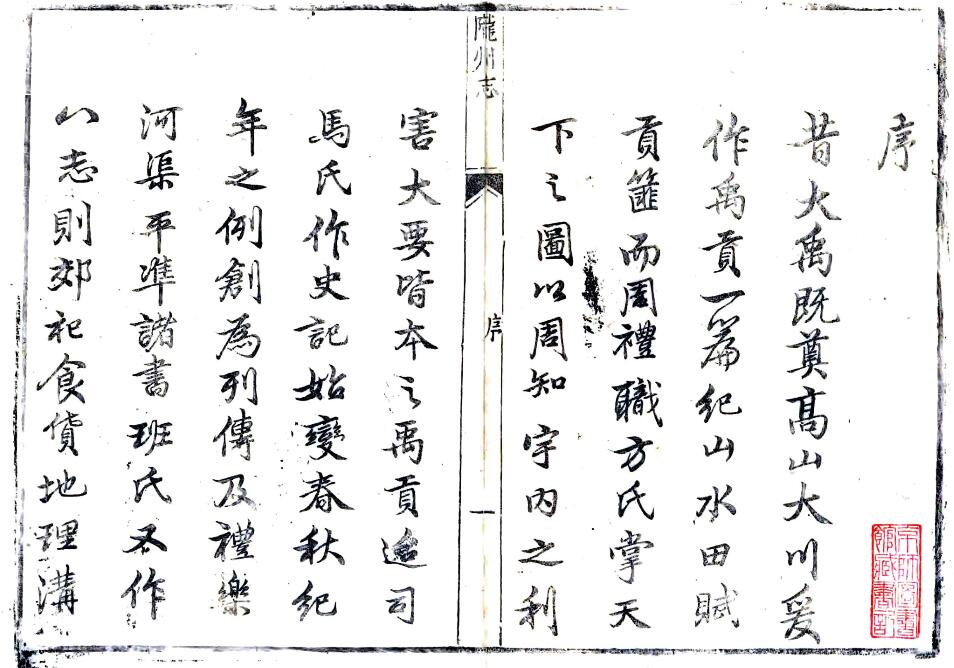 序
昔大禹既奠高山大川爰
作禹貢一篇紀山水田賦
貢篚而周禮職方氏掌天
下之圖以周知宇内之利
隴州志
序
一
害大要皆本之禹貢迨司
馬氏作史記始變春秋紀
年之例創為列傳及禮樂
河渠平準諸書班氏又作
八志則郊祀食貨地理溝
京師圖書
館藏書記